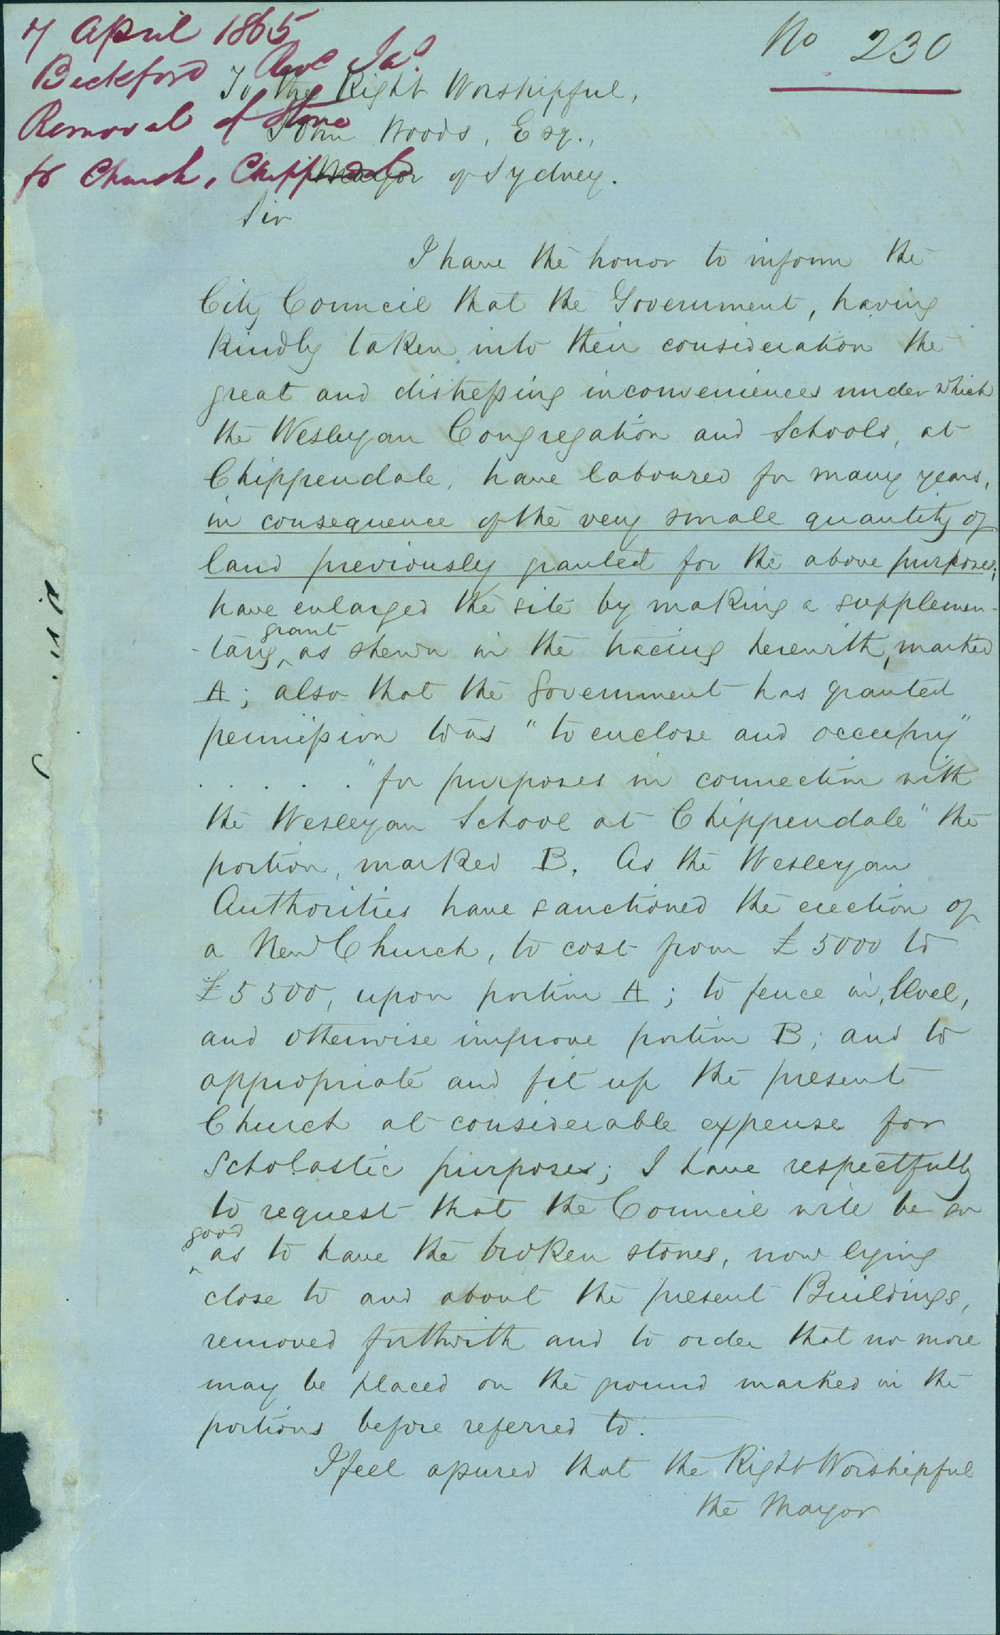 7 April 1865
Beckford Revd Jas.
Removal of Stone
fr Church, Chippendale
No 230
To the Right Worshipful,
John Woods, Esq.,
Mayor of Sydney.
Sir
I have the honor to inform the
City Council that the Government, having
kindly taken into their consideration the
great and distressing inconveniences under which
the Wesleyan Congregation and Schools, at
Chippendale, have laboured for many years,
in consequence of the very small quantity of
land previously granted for the above purposes;
have enlarged the site by making a supplemen-
-tary grant as shewn in the tracing herewith, marked
A; also that the Government has granted
permission to us "to enclose and occupy"
. . . . . "for purposes in connection with
the Wesleyan School at Chippendale" the
portion, marked B. As the Wesleyan
Authorities have sanctioned the erection of
a New Church, to cost from £5000 to
£5500, upon portion A; to fence in, level,
and otherwise improve portion B; and to
appropriate and fit up the present
Church at considerable expense for
Scholastic purposes; I have respectfully
to request that the Council will be so
good as to have the broken stones, now lying
close to and about the present Buildings,
removed forthwith and to order that no more
may be placed on the ground marked in the
portions before referred to.
I feel assured that the Right Worshipful
the Mayor